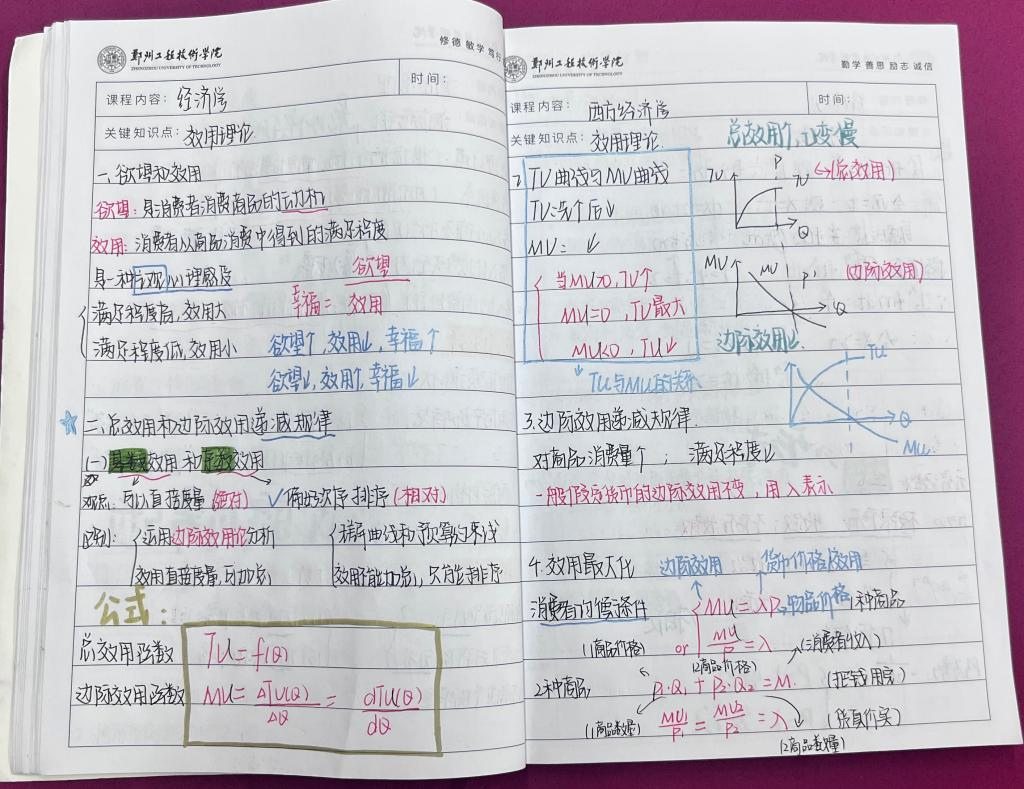 郑州工程技术学院
ZHENGZHOU UNIVERSITY OF TECHNOLOGY
修德 敏学 笃行
课程内容: 经济学
时间:
关键知识点: 效用理论
一、欲望和效用
欲望: 是消费者消费商品的动机
效用: 消费者从商品消费中得到的满足程度
是一种主观心理感受
欲望
满足程度高, 效用大
幸福 = 效用
满足程度低, 效用小
欲望↑, 效用↓, 幸福↑
欲望↓, 效用↑, 幸福↓
二、总效用和边际效用递减规律
(一) 基数效用和序数效用
观点: 可以直接度量 (绝对)
排序 (相对)
区别: 运用边际效用论分析
无差异曲线和预算约束线
效用直接度量, 可加总
效用不能加总, 只能排序
公式:
总效用函数 TU = f(Q)
边际效用函数 MU = ΔTU(Q)/ΔQ = dTU(Q)/dQ
郑州工程技术学院
ZHENGZHOU UNIVERSITY OF TECHNOLOGY
勤学 善思 励志 诚信
课程内容: 西方经济学
时间:
关键知识点: 效用理论
总效用↑, 但变慢
2 TU曲线与MU曲线
TU P TU (总效用)
TU=先↑后↓
Q
MU= ↓
MU MU P1 (边际效用)
当MU>0, TU↑
Q
MU=0, TU最大
MU<0, TU↓
边际效用↓
TU与MU的关系
TU
Q
MU
3.边际效用递减规律
对商品消费量↑ ; 满足程度↓
一般假定货币的边际效用不变, 用λ表示
4.效用最大化
边际效用
货币价格效用
消费者均衡条件
MU = λP 物品价格 1种商品
(1商品价格) or MU/P = λ (消费者收入)
(2商品价格)
2种商品 P1·Q1 + P2·Q2 = M (把钱用完)
(1商品数量) MU1/P1 = MU2/P2 = λ
(2商品数量)